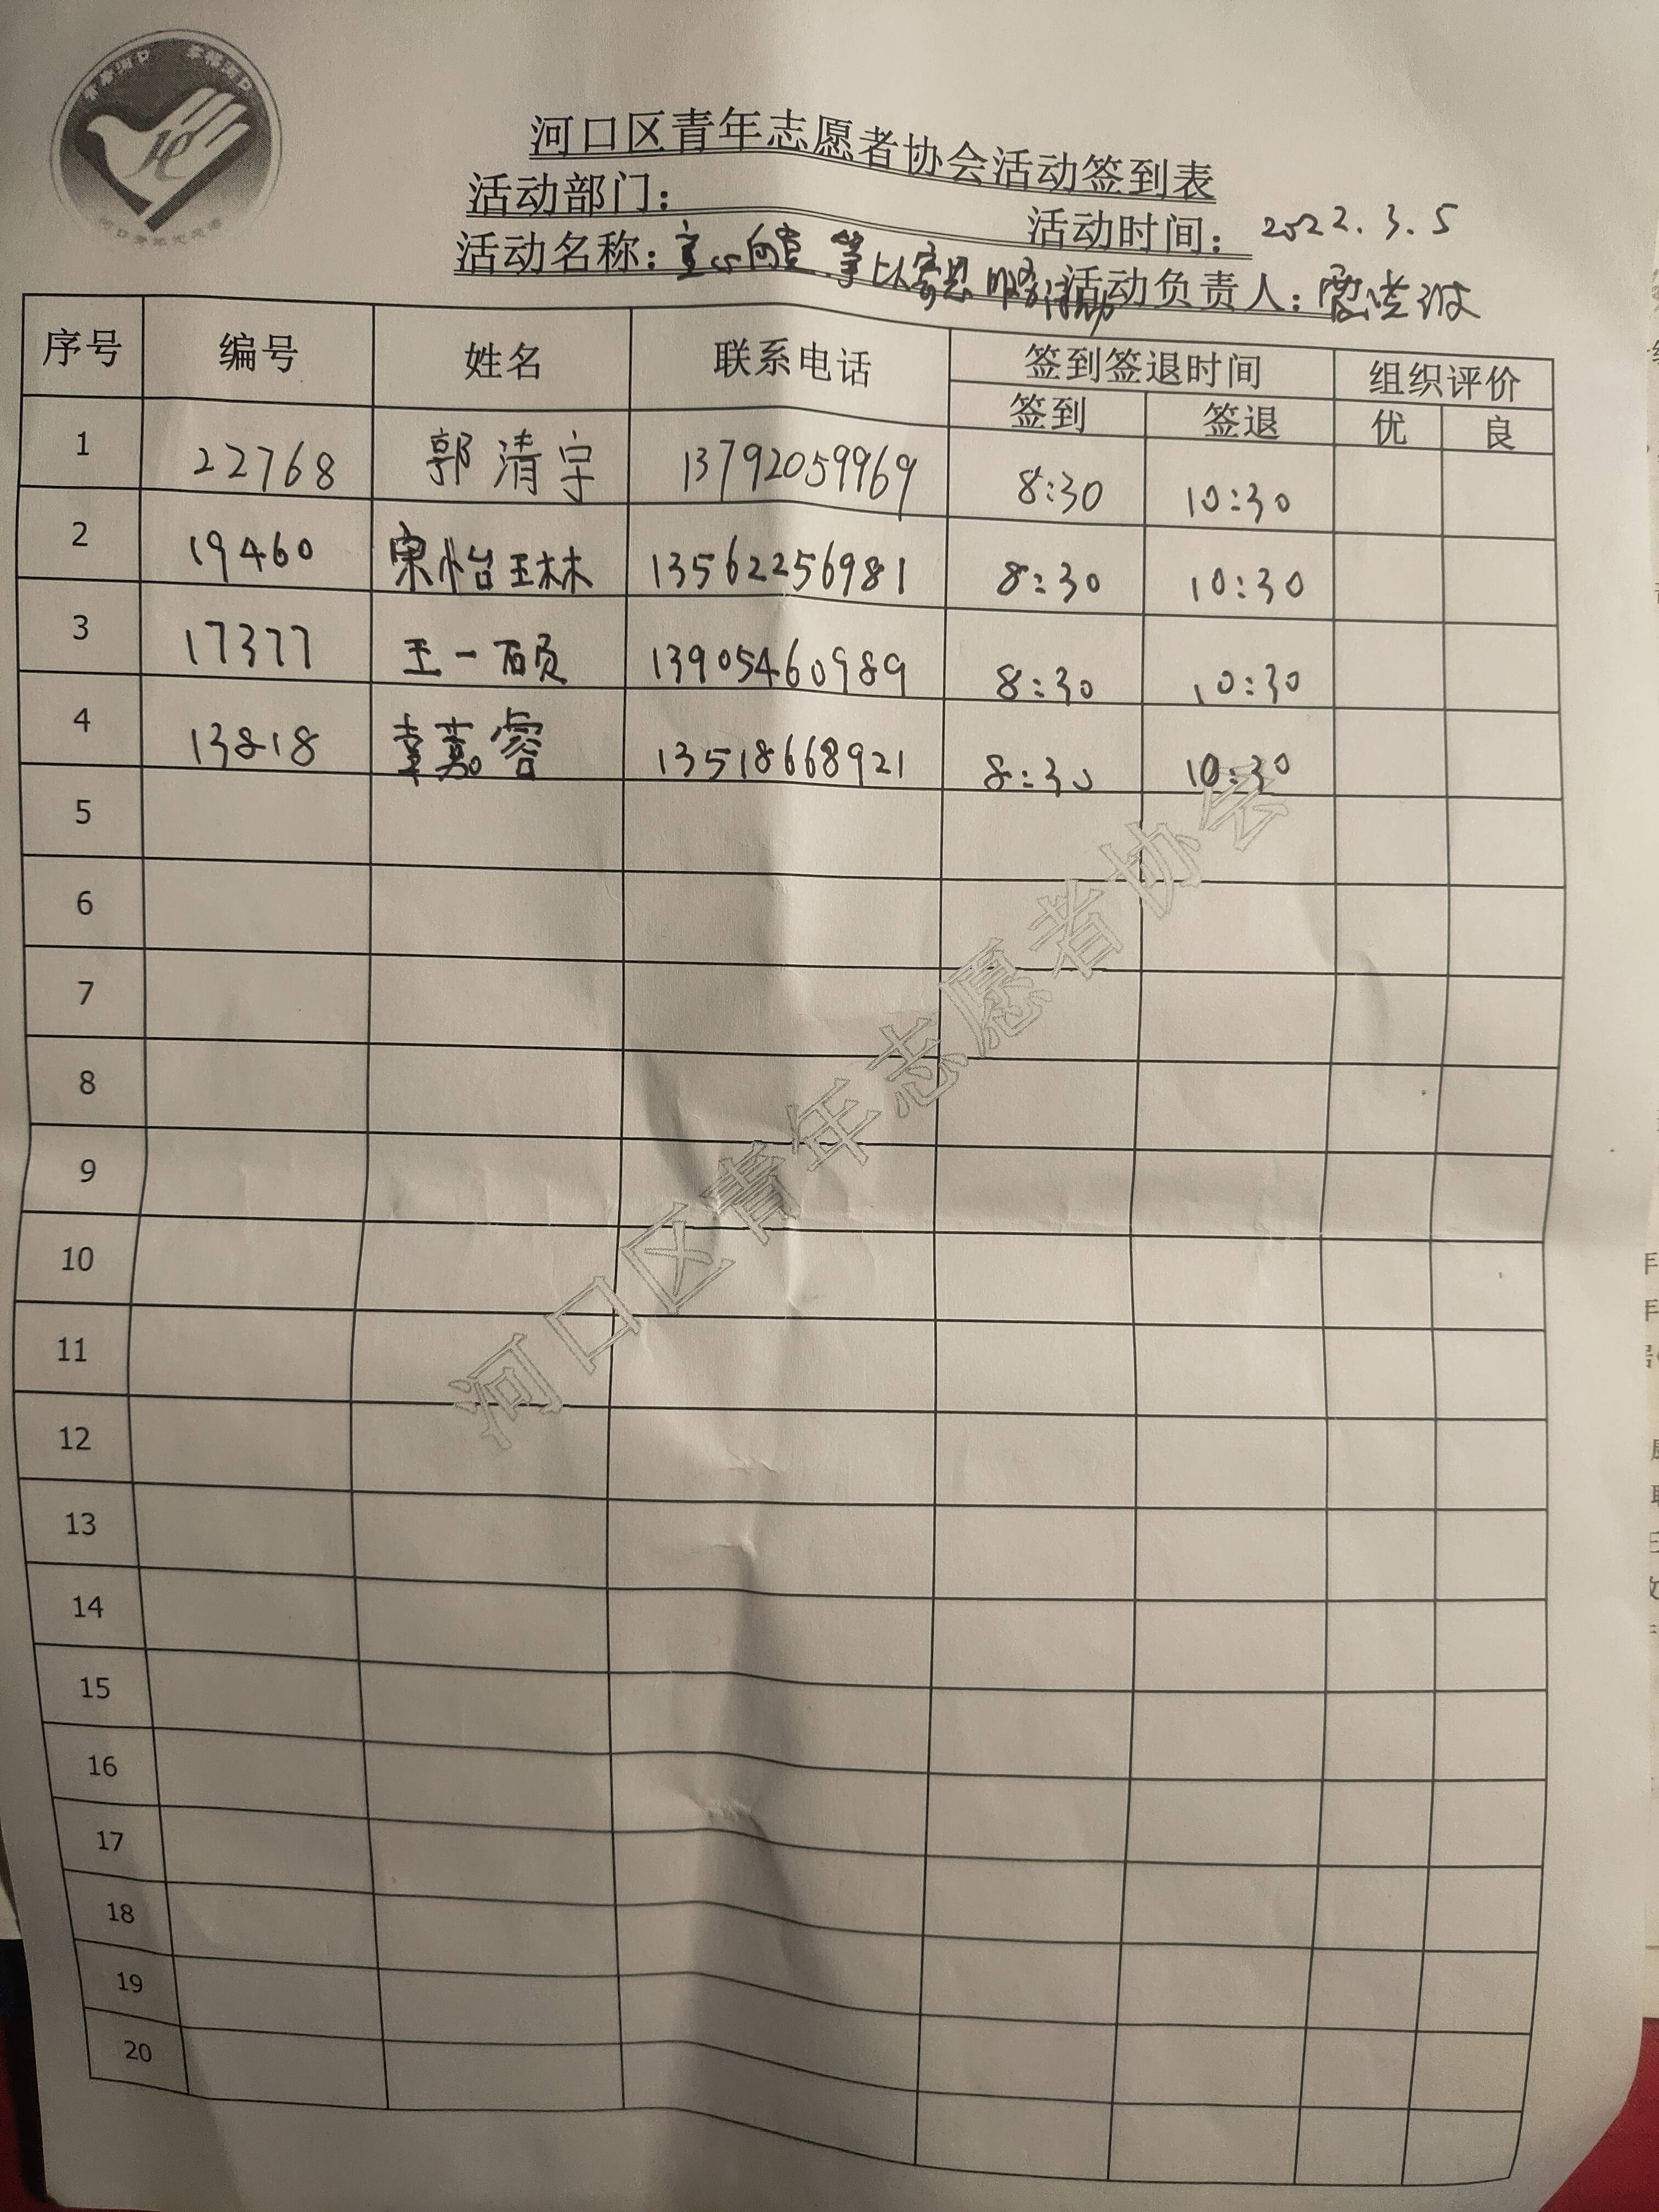 河口区青年志愿者协会活动签到表
活动部门: 活动时间: 2022.3.5
活动名称: 活动负责人:
序号 编号 姓名 联系电话 签到签退时间 组织评价
签到 签退 优 良
1 22768 郭清宇 13792059969 8:30 10:30
2 19460 宋怡琳 13562256981 8:30 10:30
3 17377 王一硕 13905460989 8:30 10:30
4 13818 袁嘉睿 13518668921 8:30 10:30
5
6
7
8
9
10
11
12
13
14
15
16
17
18
19
20
河口区青年志愿者协会